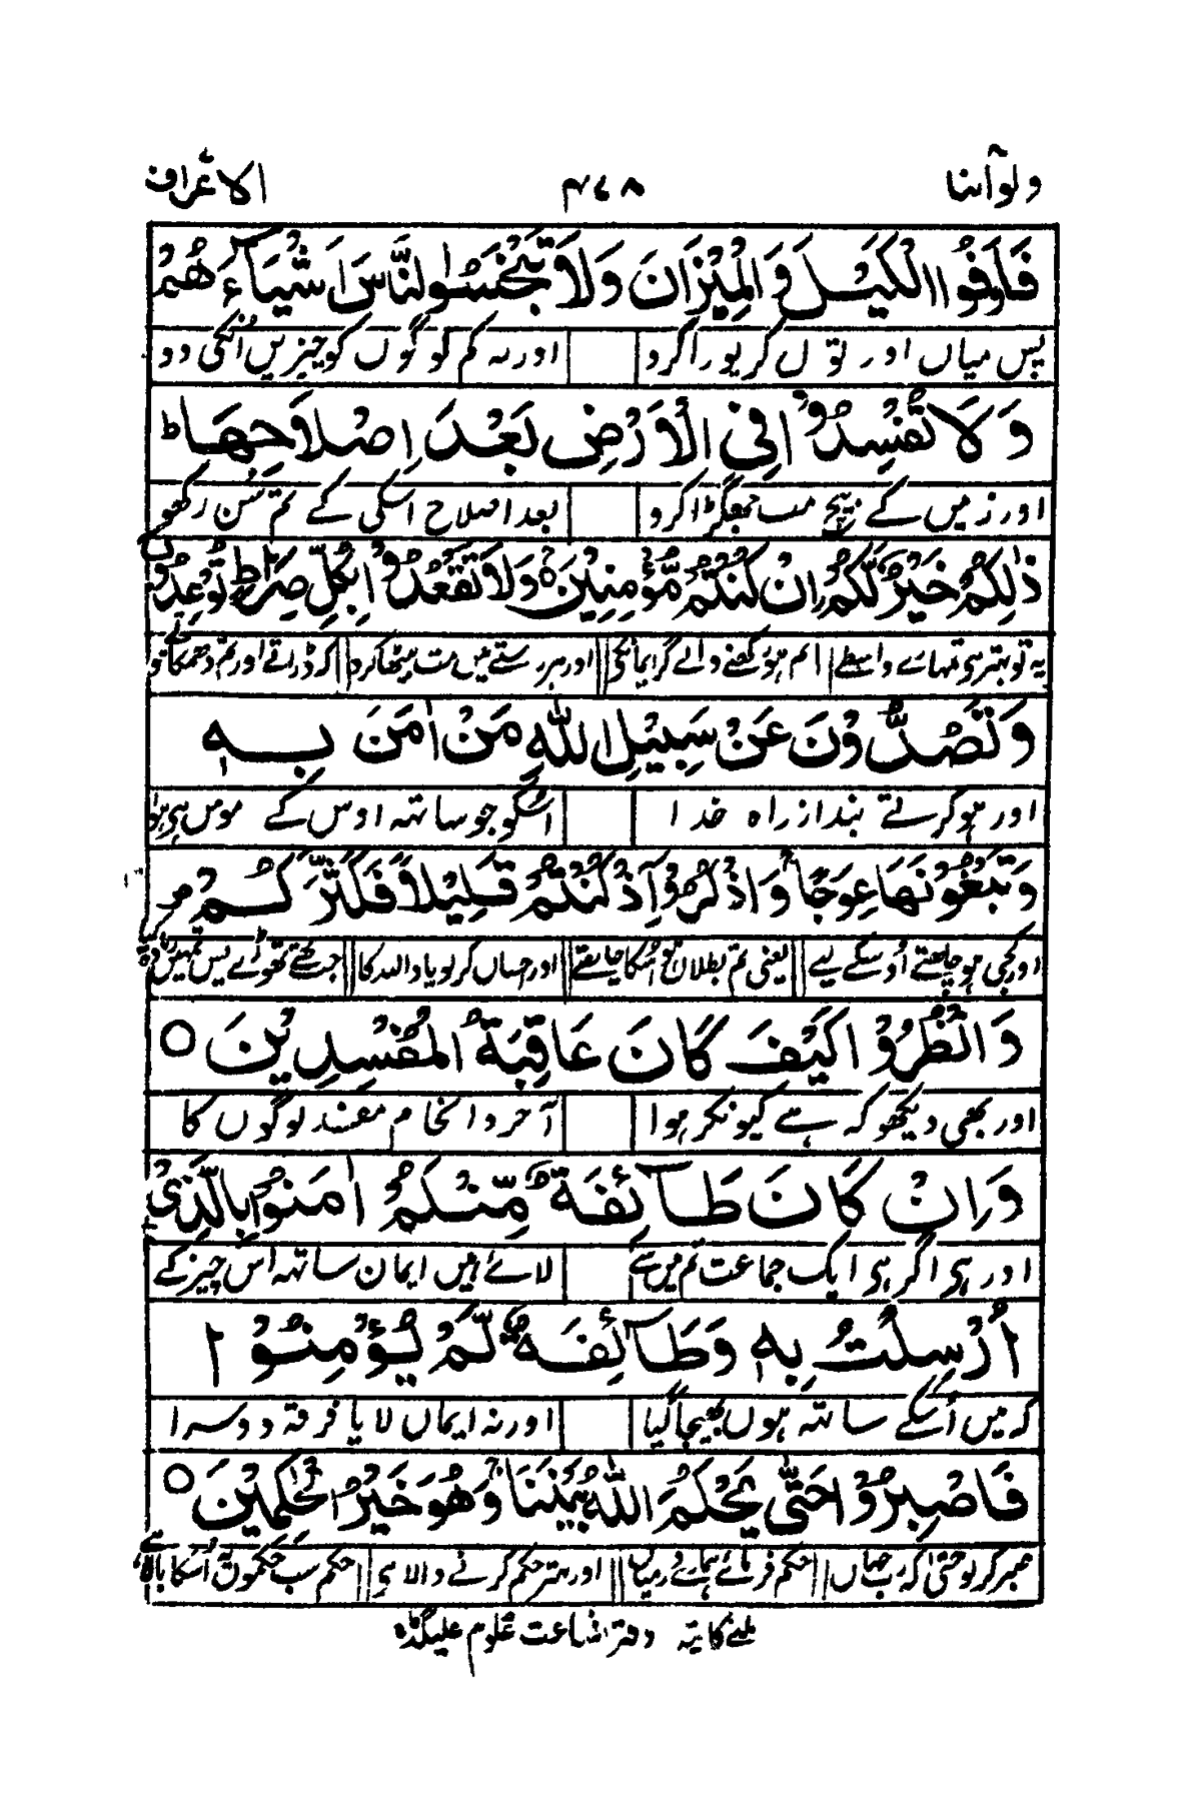 ولوآننا ۴۷۸ الاعراف
فَاَوْفُوا الْكَيْلَ وَالْمِيْزَانَ وَلَا تَبْخَسُوا النَّاسَ اَشْيَاءَهُمْ
پس میاں اور تول کر پورا کرو اور نہ کم لوگوں کو چیزیں انکی دو
وَلَا تُفْسِدُوْا فِي الْاَرْضِ بَعْدَ اِصْلَاحِهَا ط
اور زمیں کے بیچ مت جھگڑا کرو بعد اصلاح اسکی کے تم سُن رکھو
ذٰلِكُمْ خَيْرٌ لَّكُمْ اِنْ كُنْتُمْ مُّؤْمِنِيْنَ ۝ وَلَا تَقْعُدُوْا بِكُلِّ صِرَاطٍ تُوْعِدُوْنَ
یہ تو بہتر ہی تمہارے واسطے تم ہو رکھنے والے گر ایمانکی اور ہر رستے میں مت بیٹھا کرو کہ ڈراتے اور تم دھمکاتے ہو
وَتَصُدُّوْنَ عَنْ سَبِيْلِ اللّٰهِ مَنْ اٰمَنَ بِهٖ
اور ہو کرتے بند از راہ خدا اُسکو جو ساتہہ اوس کے مومن ہی ہوا
وَتَبْغُوْنَهَا عِوَجًا وَاذْكُرُوْآ اِذْ كُنْتُمْ قَلِيْلًا فَكَثَّرَكُمْ
اور کجی ہو چاہتے اُوسکے لیے یعنی تم بطلان ہو اُسکا چاہتے اور احساں کرلو یاد اللہ کا جب تھے تھوڑے پس تمہیں
وَانْظُرُوْا كَيْفَ كَانَ عَاقِبَةُ الْمُفْسِدِيْنَ ۝
اور بھی دیکھو کہ ہے کیونکر ہوا آخر و انجام مفسد لوگوں کا
وَاِنْ كَانَ طَآئِفَةٌ مِّنْكُمْ اٰمَنُوْا بِالَّذِيْ
اور ہی اگر ہی ایک جماعت تم میں سے لائے ہیں ایمان ساتہہ اُس چیز کے
اُرْسِلْتُ بِهٖ وَطَآئِفَةٌ لَّمْ يُؤْمِنُوْا
کہ میں اُسکے ساتہہ ہوں بھیجا گیا اور نہ ایماں لایا فرقۃ دوسرا
فَاصْبِرُوْا حَتّٰى يَحْكُمَ اللّٰهُ بَيْنَنَا وَهُوَ خَيْرُ الْحٰكِمِيْنَ ۝
صبر کر لو حتیٰ کہ رب جہاں حکم فرمائے ہمارے درمیاں اور بہتر حکم کرنے والا ہی حکم سب حکموں پہ اُسکا بالا ہے
ملنے کا پتہ دفتر اشاعت علوم علیگڈہ